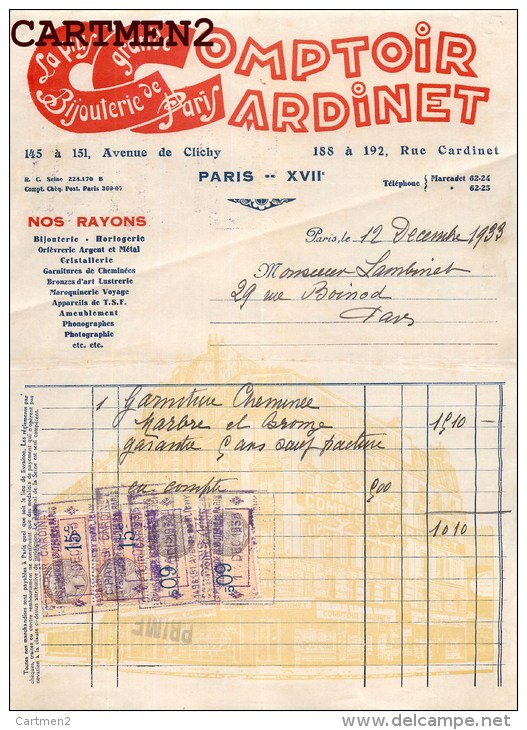 CARTMEN2
La Plus Grande
Bijouterie de Paris
COMPTOIR
CARDINET
145 à 151, Avenue de Clichy
188 à 192, Rue Cardinet
R. C. Seine 228.170 B
Compt. Chèq. Post. Paris 309-07
PARIS -- XVIIe
Téléphone { Marcadet 62-24
" 62-25
NOS RAYONS
Bijouterie - Horlogerie
Orfèvrerie Argent et Métal
Cristallerie
Garnitures de Cheminées
Bronzes d'art Lustrerie
Maroquinerie Voyage
Appareils de T.S.F.
Ameublement
Phonographes
Photographie
etc. etc.
Paris, le 12 Decembre 1933
Monsieur Lambinet
29 rue Boinod
Paris
1 Garniture Cheminee
Marbre et Bronze 1510 —
garantie 5 ans sauf facture
en compte 500
1010
PRIME
Toutes nos marchandises sont payables à Paris quel que soit le lieu de livraison. Les règlements par
Cartmen2
www.delcampe.net